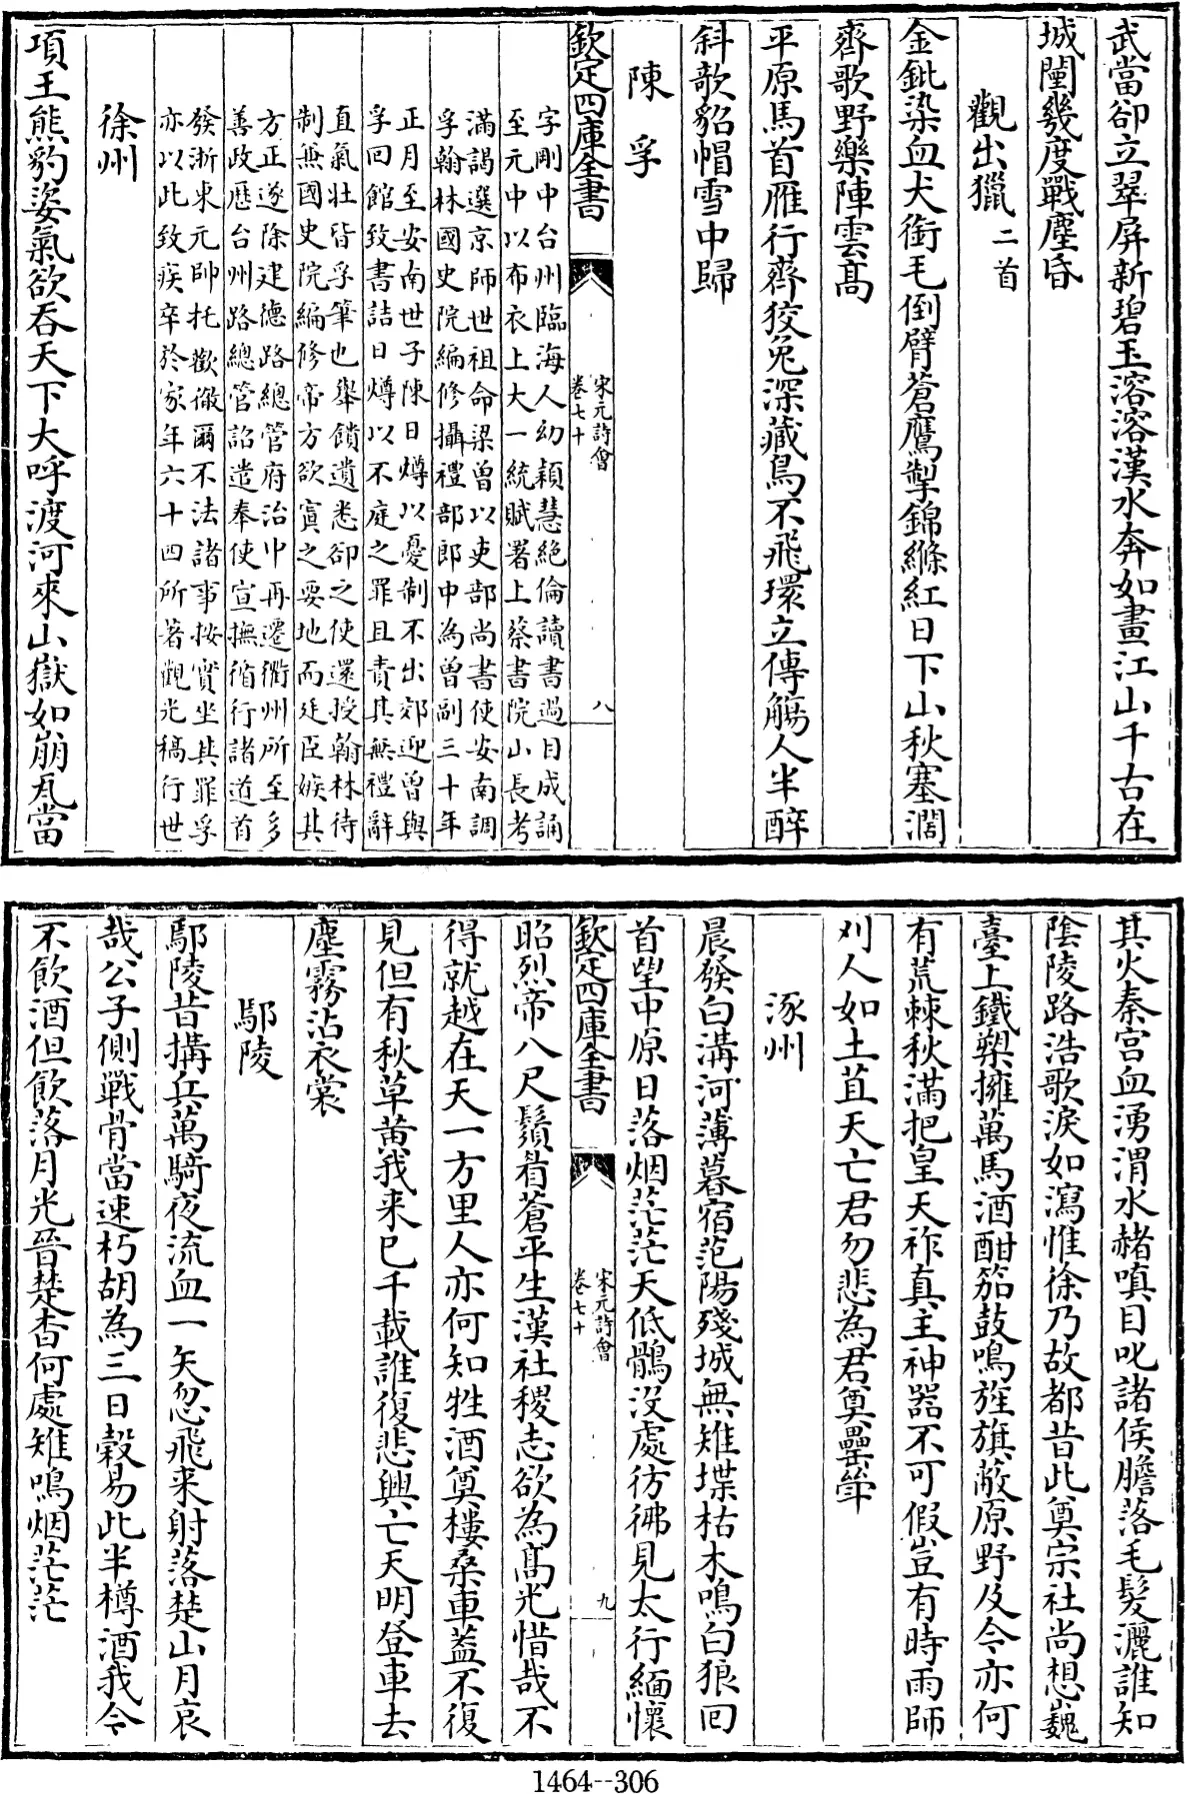 武當卻立翠屏新碧玉溶溶漢水奔如畫江山千古在
城闉幾度戰塵昏
觀出獵二首
金鈚染血犬銜毛倒臂蒼鷹掣錦縧紅日下山秋塞濶
齊歌野樂陣雲髙
平原馬首雁行齊狡兔深藏鳥不飛環立傳觴人半醉
斜欹貂帽雪中歸
陳孚
字剛中台州臨海人幼穎慧絶倫讀書過目成誦
至元中以布衣上大一統賦署上蔡書院山長考
滿謁選京師世祖命梁曽以吏部尚書使安南調
孚翰林國史院編修攝禮部郎中為曽副三十年
正月至安南世子陳日燇以憂制不出郊迎曽與
孚回館致書詰日燇以不庭之罪且責其無禮辭
直氣壯皆孚筆也舉饋遺悉卻之使還授翰林待
制兼國史院編修帝方欲寘之要地而廷臣嫉其
方正遂除建德路總管府治中再遷衢州所至多
善政歷台州路總管詔遣奉使宣撫循行諸道首
發浙東元帥托歡徹爾不法諸事按實坐其罪孚
亦以此致疾卒於家年六十四所著觀光稿行世
徐州
項王熊豹姿氣欲吞天下大呼渡河來山嶽如崩瓦當
欽定四庫全書
宋元詩會
卷七十
八
其火秦宮血湧渭水赭嗔目叱諸侯膽落毛髪灑誰知
陰陵路浩歌淚如瀉惟徐乃故都昔此奠宗社尚想巍
臺上鐵槊擁萬馬酒酣笳鼓鳴旌旗蔽原野及今亦何
有荒棘秋滿把皇天祚真主神器不可假豈有時雨師
刈人如土苴天亡君勿悲為君奠罍斝
涿州
晨發白溝河薄暮宿范陽殘城無雉堞枯木鳴白狼回
首望中原日落烟茫茫天低鶻没處彷彿見太行緬懷
欽定四庫全書
宋元詩會
卷七十
九
昭烈帝八尺鬚眉蒼平生漢社稷志欲為髙光惜哉不
得就越在天一方里人亦何知牲酒奠樓桑車葢不復
見但有秋草黄我来已千載誰復悲興亡天明登車去
塵霧沾衣裳
鄢陵
鄢陵昔搆兵萬騎夜流血一矢忽飛来射落楚山月哀
哉公子側戰骨當速朽胡為三日穀易此半樽酒我今
不飲酒但飲落月光晉楚杳何處雉鳴烟茫茫
1464--306